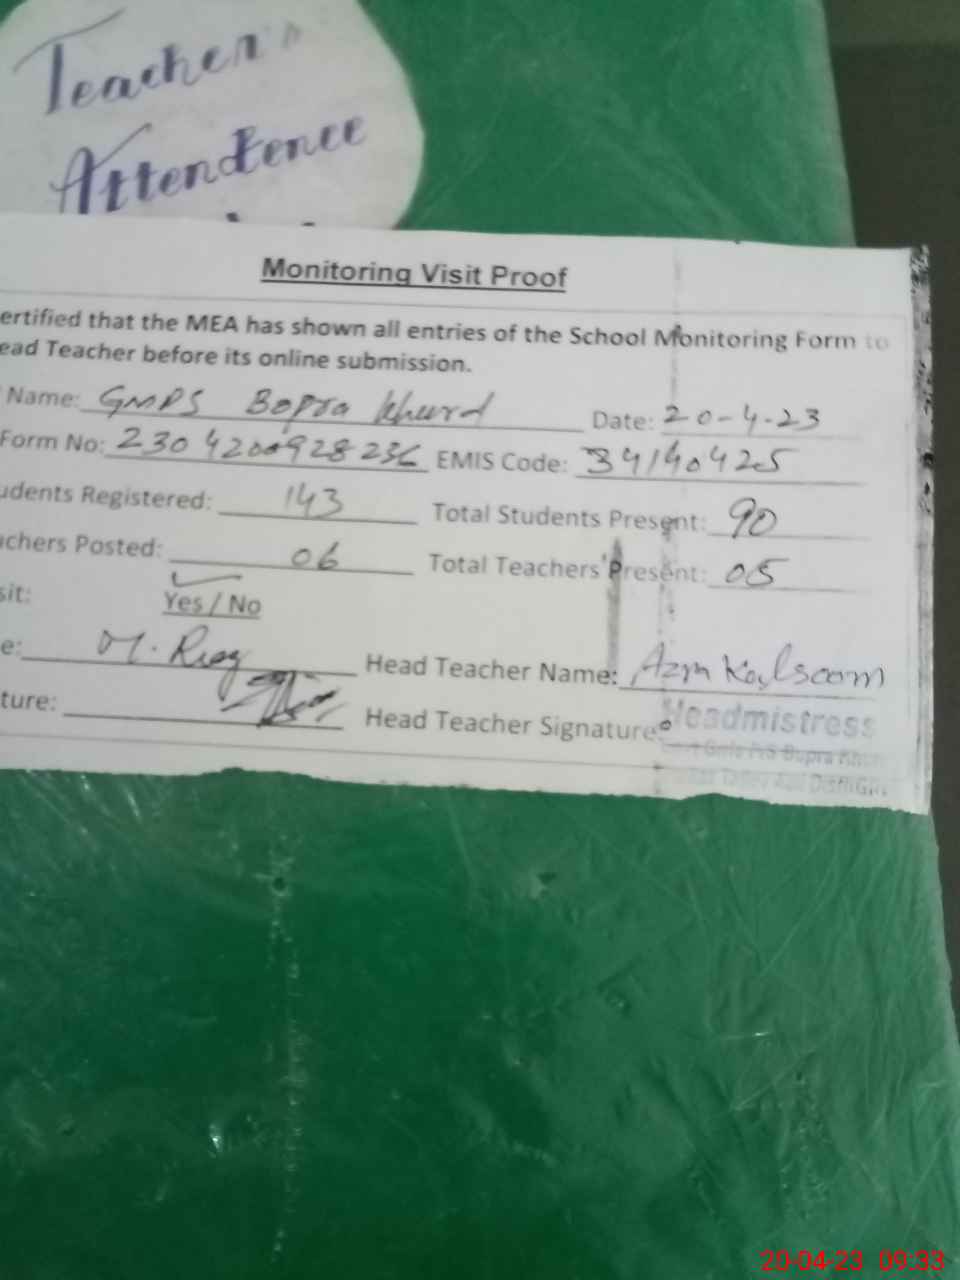 Teacher
Attendence
Monitoring Visit Proof
ertified that the MEA has shown all entries of the School Monitoring Form to
ead Teacher before its online submission.
Name: GMPS Bopra Khurd Date: 20-4-23
Form No: EMIS Code: 34140425
udents Registered: 143 Total Students Present: 90
achers Posted: 06 Total Teachers Present: 05
sit: Yes / No
e: M. Head Teacher Name: Azra Kalsoom
ture: Head Teacher Signature: Headmistress
Girls P/S Bopra
20-04-23 09:33